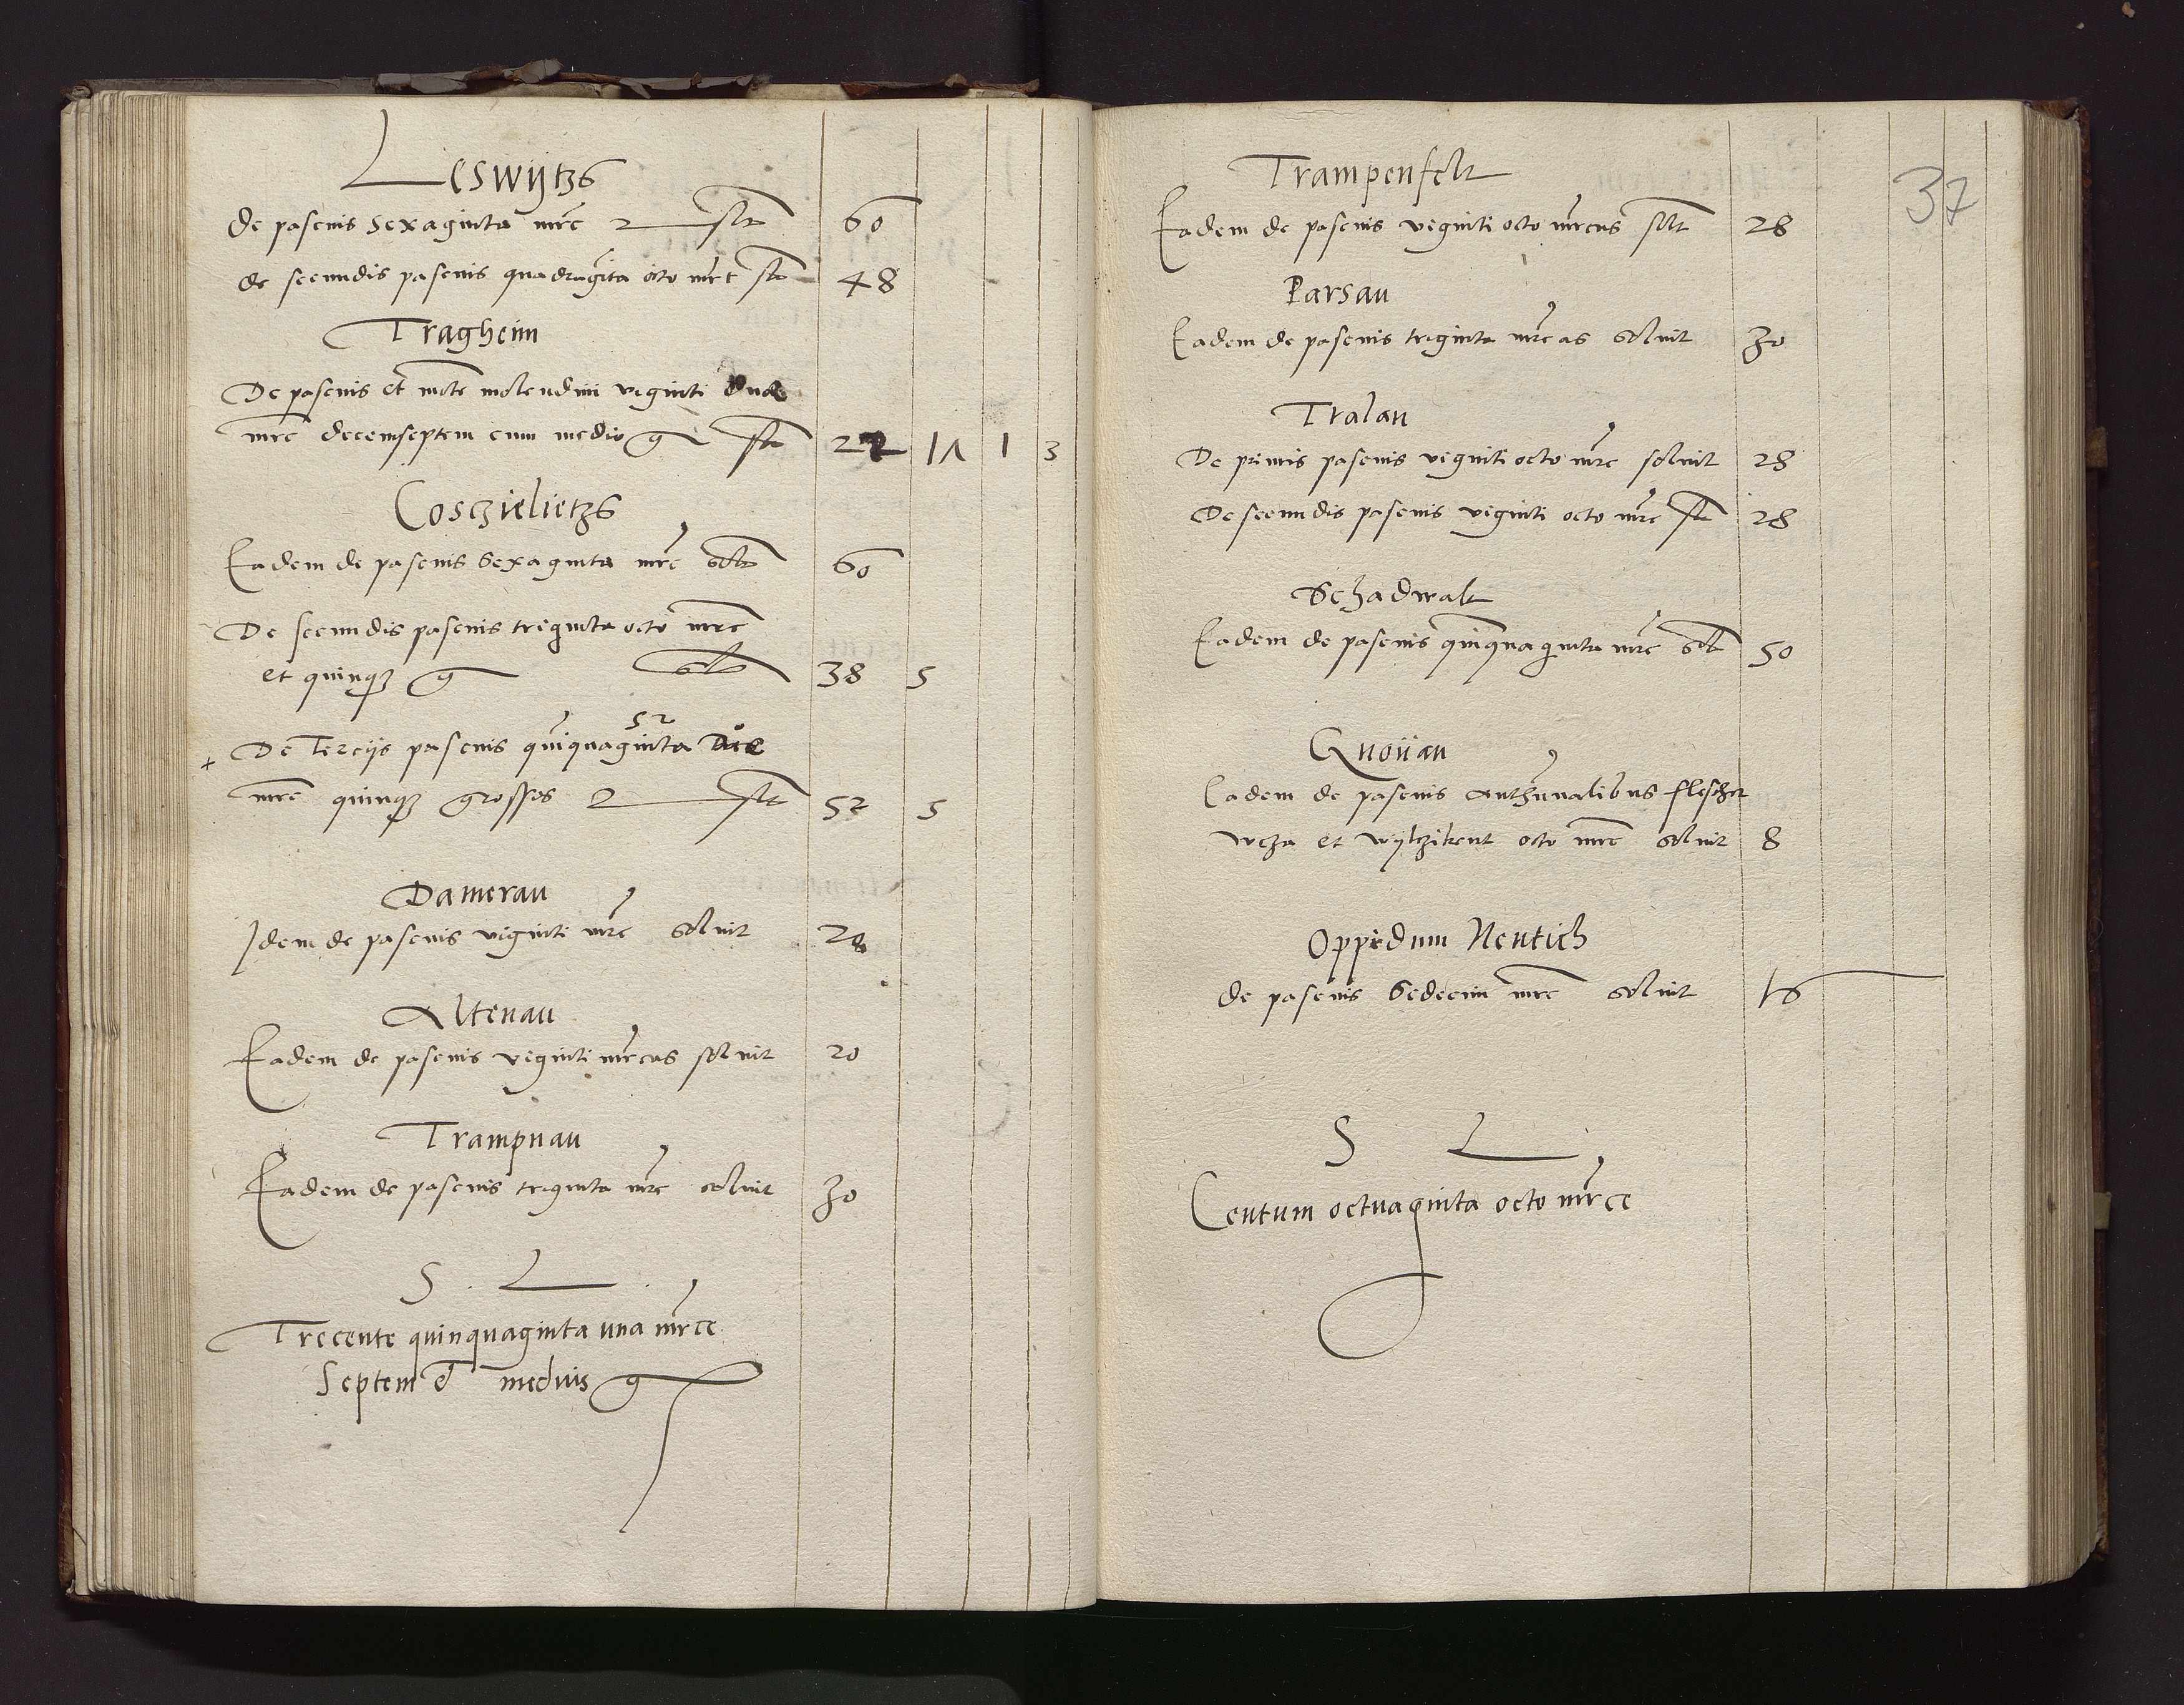 Leswijtzs
de pascuis sexaginta mrc slt 60
de secundis pascuis quadraginta octo mrc slt 48
Tragheim
De pascuis et mote molendini viginti duas
mrc decemseptem cum medio g slt 22 17 1 3
Coszielietzs
Eadem de pascuis sexaginta mrc solt 60
De secundis pascuis triginta octo mrc
et quinqz g slt 38 5
52
+ De Tercijs pascuis quinquaginta
mrc quinqz grosses slt 52 5
Damerau
Idem de pascuis viginti mrc soluit 20
Altenau
Eadem de pascuis viginti mrcas soluit 20
Trampnau
Eadem de pascuis triginta mrc soluit 30
S . L .
Trecente quinquaginta una mrce
Septem et medius g
37
Trampenfelt
Eadem de pascuis viginti octo mrcas solt 28
Parsau
Eadem de pascuis triginta mrcas soluit 30
Tralau
De primis pascuis viginti octo mrc soluit 28
De secundis pascuis viginti octo mrc slt 28
Schadwalt
Eadem de pascuis quinquaginta mrc solt 50
Eadem de pascuis
et octo mrc soluit 8
Oppidum Neutich
de pascuis sedecim mrc soluit 16
S L
Centum octuaginta octo mrce